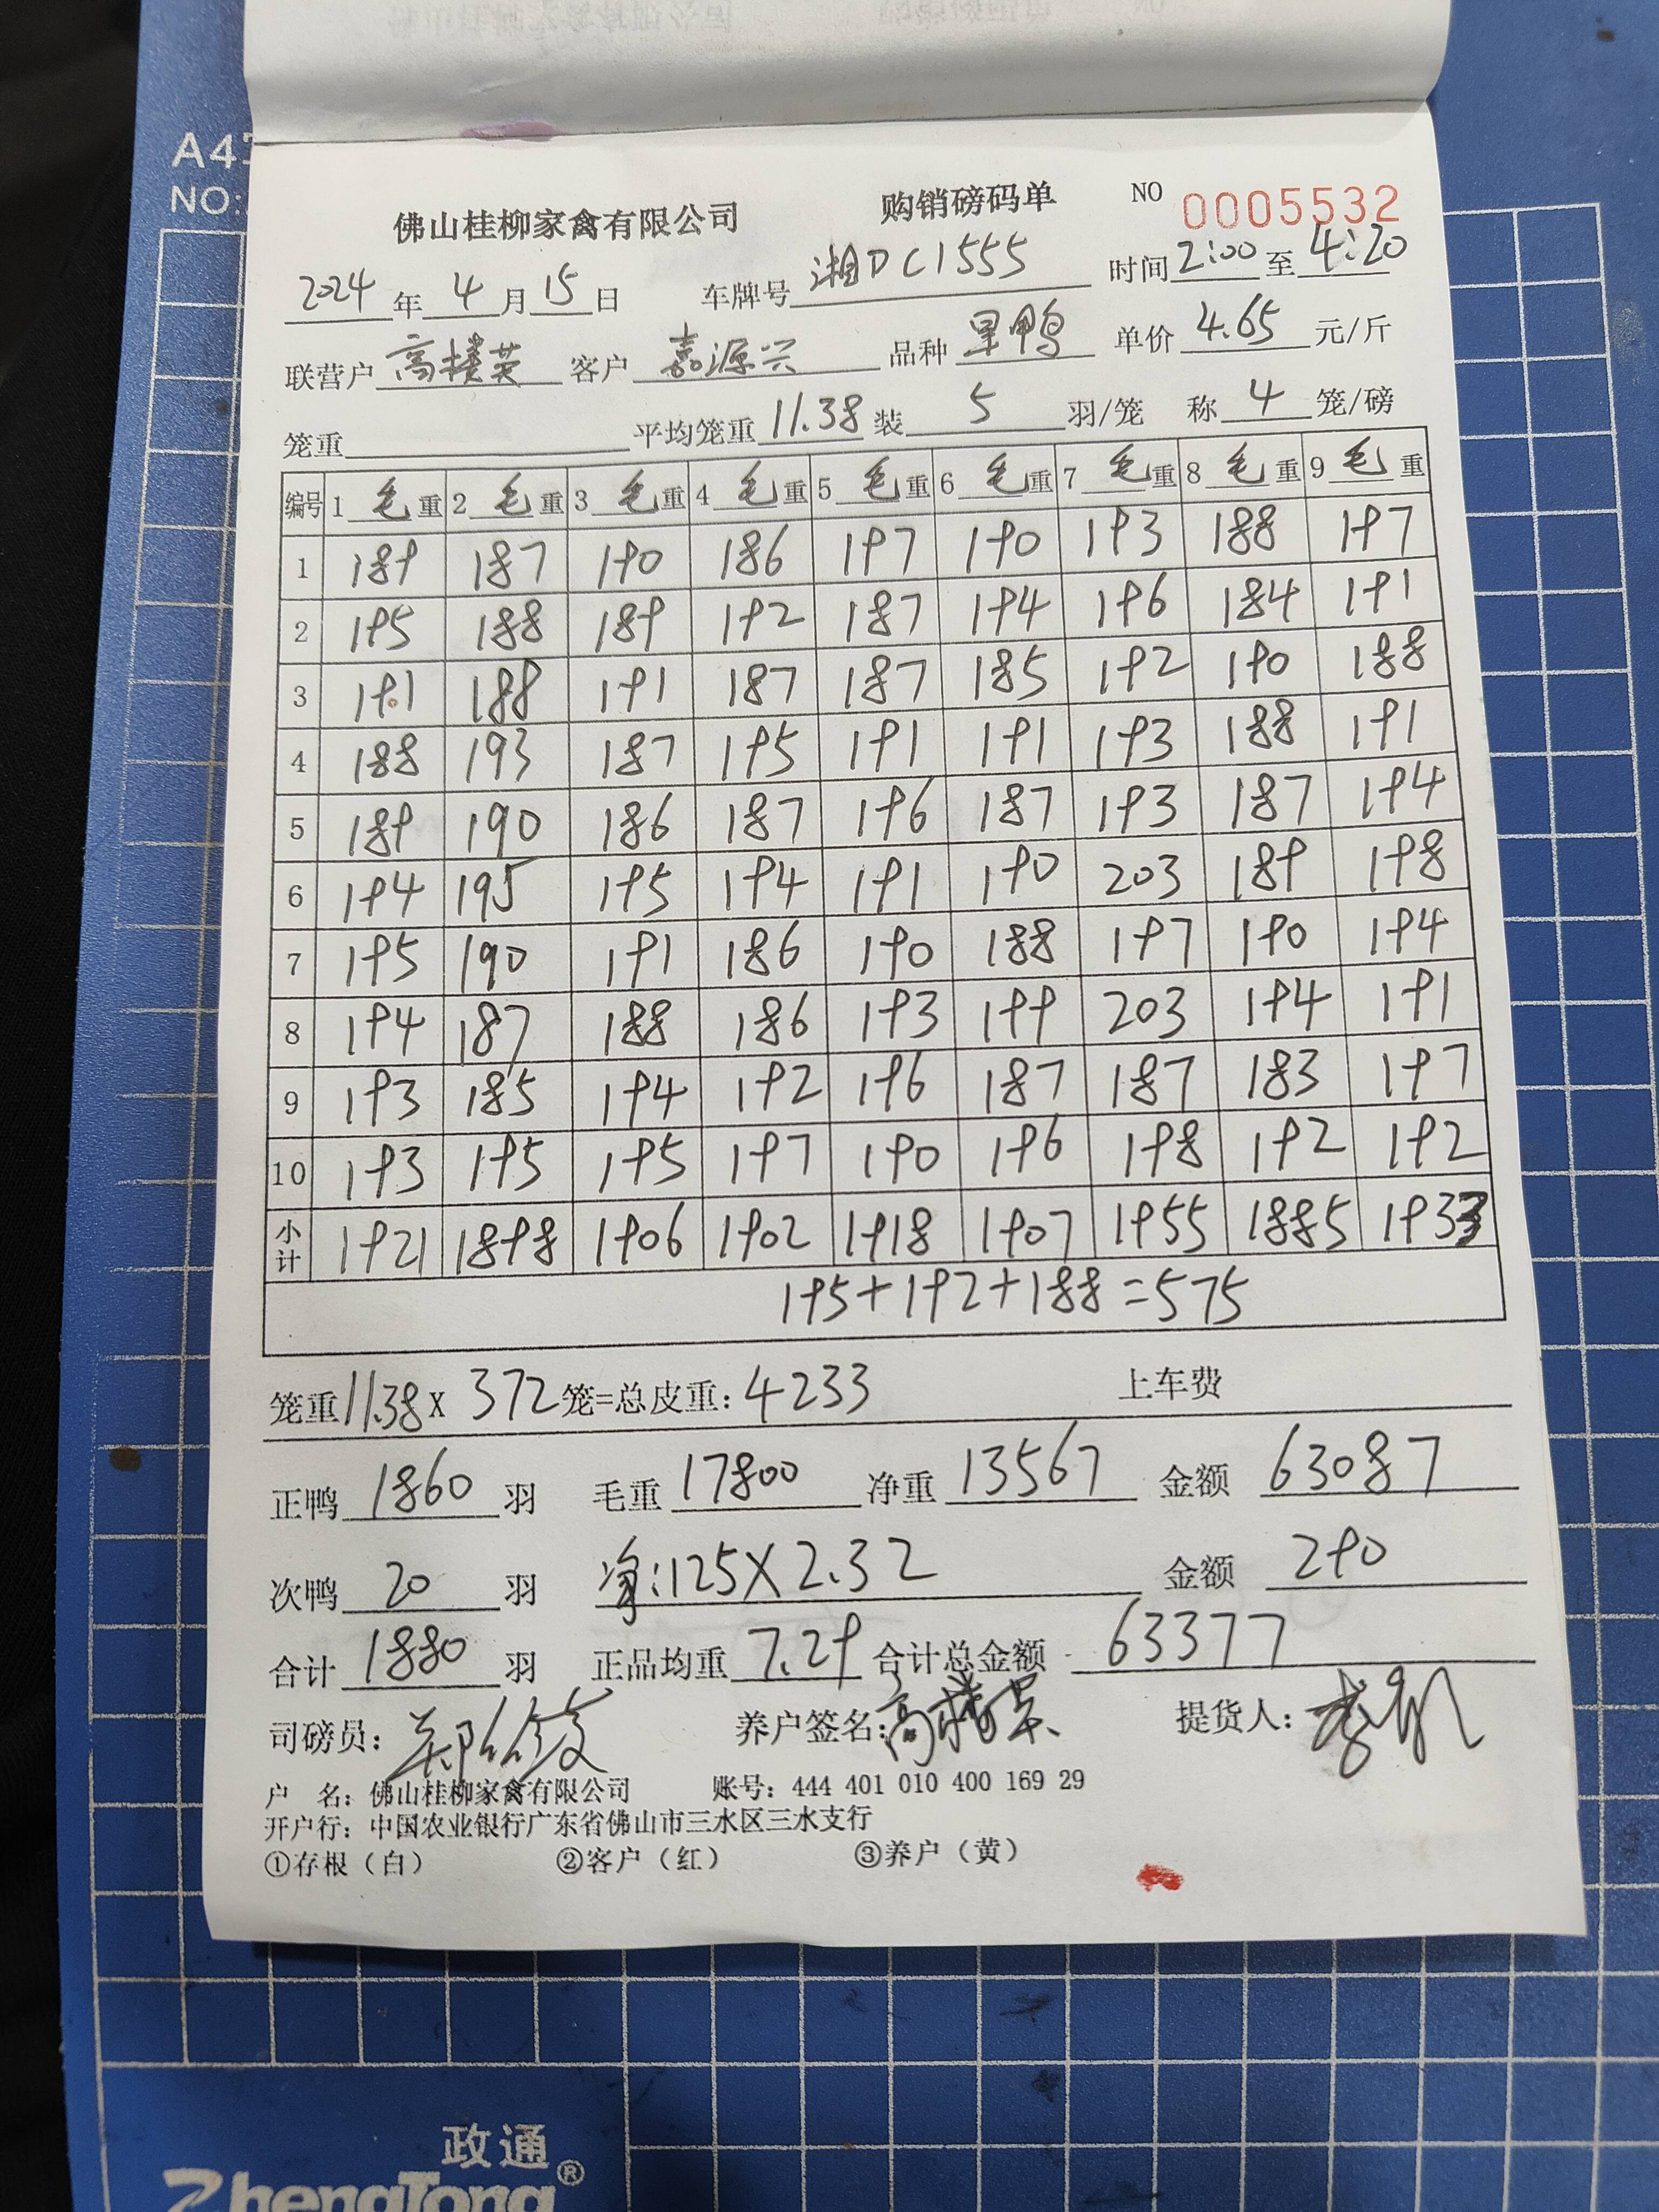 A4
NO:
佛山桂柳家禽有限公司 购销磅码单 NO 0005532
2024年4月15日 车牌号 湘DC1555 时间2:00至4:20
联营户 高楼英 客户 嘉源兴 品种 旱鸭 单价 4.65 元/斤
笼重 平均笼重 11.38 装 5 羽/笼 称 4 笼/磅
编号 1 毛重 2 毛重 3 毛重 4 毛重 5 毛重 6 毛重 7 毛重 8 毛重 9 毛重
1 189 187 190 186 197 190 193 188 197
2 195 188 189 192 187 194 196 184 191
3 191 188 191 187 187 185 192 190 188
4 188 193 187 195 191 191 193 188 191
5 189 190 186 187 196 187 193 187 194
6 194 195 195 194 191 190 203 189 198
7 195 190 191 186 190 188 197 190 194
8 194 187 188 186 193 199 203 194 191
9 193 185 194 192 196 187 187 183 197
10 193 195 195 197 190 196 198 192 192
小计 1921 1898 1906 1902 1918 1907 1955 1885 1933
195+192+188=575
笼重11.38X 372笼=总皮重:4233 上车费
正鸭 1860 羽 毛重 17800 净重 13567 金额 63087
次鸭 20 羽 净:125X2.32 金额 290
合计 1880 羽 正品均重 7.29 合计总金额 63377
司磅员: 养户签名: 提货人:
户 名:佛山桂柳家禽有限公司 账号:444 401 010 400 169 29
开户行:中国农业银行广东省佛山市三水区三水支行
①存根(白) ②客户(红) ③养户(黄)
政通
ZhengTong®